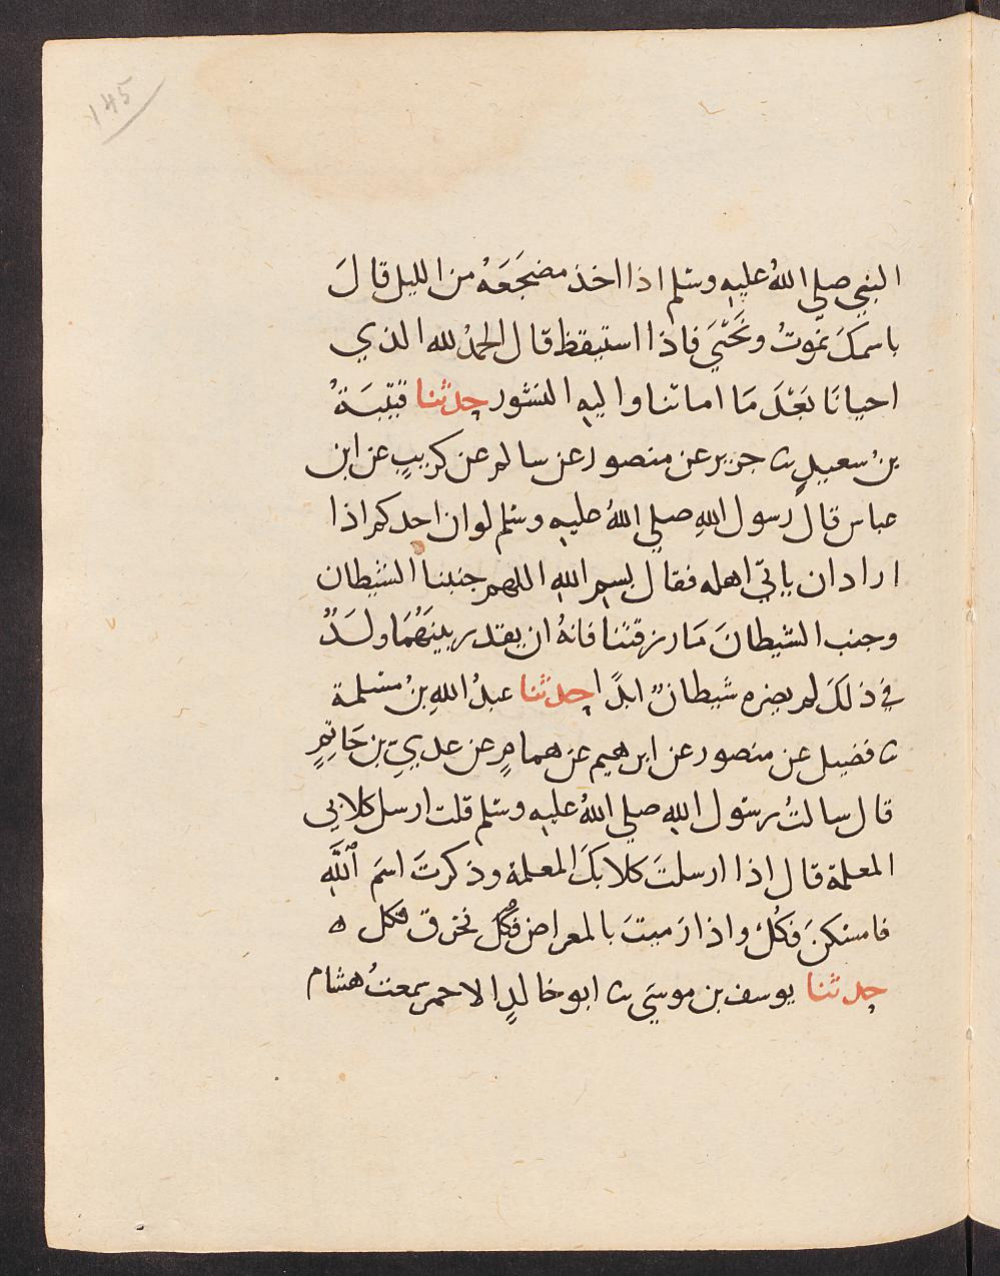 ١٤٥
النبي صلي اللهُ عليه وسلم اذا اخذ مضجَعَهُ من الليل قالَ
باسمكَ نموتُ ونَحْيَي فاذا استيقظ قال الحمدُ لله الذي
احيانَا بَعْدَ مَا اماتنا واليه النشور حدثنا قتيبَةُ
بنُ سعيدٍ ثا جرير عن منصور عن سالم عن كريبٍ عن ابن
عباس قال رسول اللهِ صلي اللهُ عليه وسلم لو ان احدكم اذا
اراد ان ياتي اهله فقال بسم الله اللهم جنبنا الشيطان
وجنب الشيطانَ مَا رزقتنا فانهُ ان يقدر بينَهُمَا ولَدٌ
في ذلكَ لم يضره شيطانٌ ابدًا حدثنا عبدُ اللهِ بنُ مسلمة
ثا فضيل عن منصور عن ابرهيم عن همامٍ عن عديِّ بن حَاتِمٍ
قال سالتُ رسول الله صلي اللهُ عليه وسلم قلت ارسل كلابي
المعلمة قال اذا ارسلتَ كلابكَ المعلمة وذكرتَ اسمَ اللَّهِ
فامسكنَ فكُلْ واذا رَميتَ بالمعراض فخرق فكل ه
حدثنا يوسف بن موسَي ثا ابو خالدٍ الاحمر سمعتُ هشام